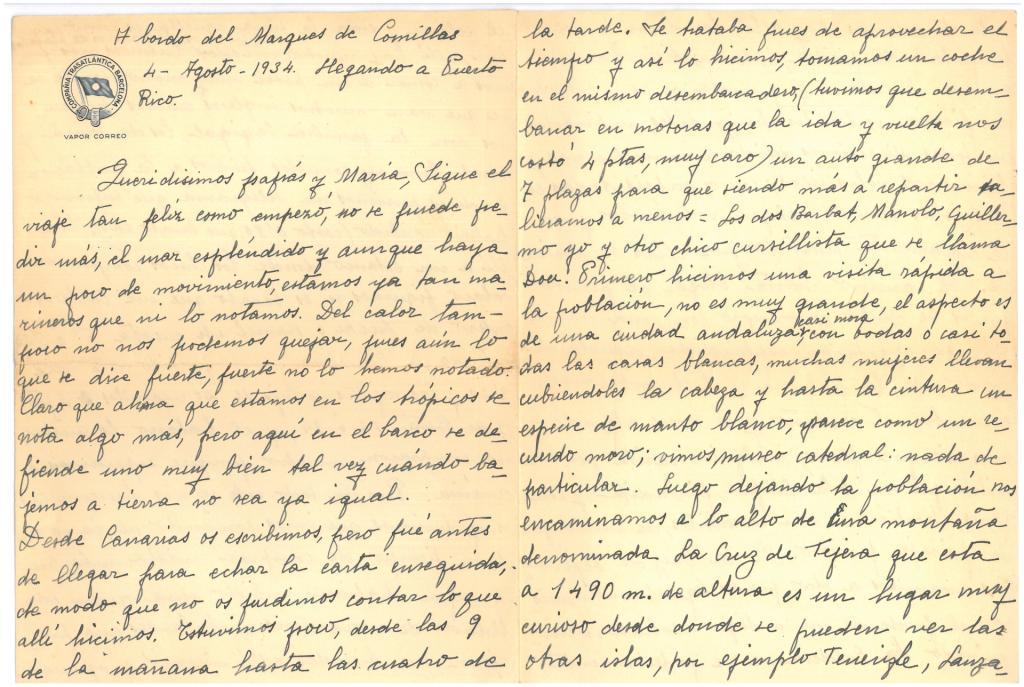 A bordo del Marques de Comillas
4 - Agosto - 1934. Llegando a Puerto
Rico.
COMPAÑIA TRASATLÁNTICA BARCELONA
VAPOR CORREO
Queridisimos papás y María, Sigue el
viaje tan feliz como empezó, no se puede pe-
dir más, el mar espléndido y aunque haya
un poco de movimiento, estamos ya tan ma-
rineros que ni lo notamos. Del calor tam-
poco no nos podemos quejar, pues aún lo
que se dice fuerte, fuerte no lo hemos notado.
Claro que ahora que estamos en los trópicos se
nota algo más, pero aquí en el barco se de-
fiende uno muy bien tal vez cuándo ba-
jemos a tierra no sea ya igual.
Desde Canarias os escribimos, pero fué antes
de llegar para echar la carta enseguida,
de modo que no os pudimos contar lo que
allí hicimos. Estuvimos poco, desde las 9
de la mañana hasta las cuatro de
la tarde. Se trataba pues de aprovechar el
tiempo y así lo hicimos, tomamos un coche
en el mismo desembarcadero, (tuvimos que desem-
barcar en motoras que la ida y vuelta nos
costó 4 ptas, muy caro) un auto grande de
7 plazas para que siendo más a repartir sa-
lieramos a menos = Los dos Barbat, Manolo, Guiller-
mo yo y otro chico cursillista que se llama
Dou. Primero hicimos una visita rápida a
la población, no es muy grande, el aspecto es
de una ciudad andaluza, casi mora, con todas o casi to-
das las casas blancas, muchas mujeres llevan
cubriendoles la cabeza y hasta la cintura un
especie de manto blanco, parece como un re-
cuerdo moro; vimos museo catedral: nada de
particular. Luego dejando la población nos
encaminamos a lo alto de una montaña
denominada La Cruz de Tejera que esta
a 1490 m. de altura es un lugar muy
curioso desde donde se pueden ver las
otras islas, por ejemplo Tenerife, Lanza-